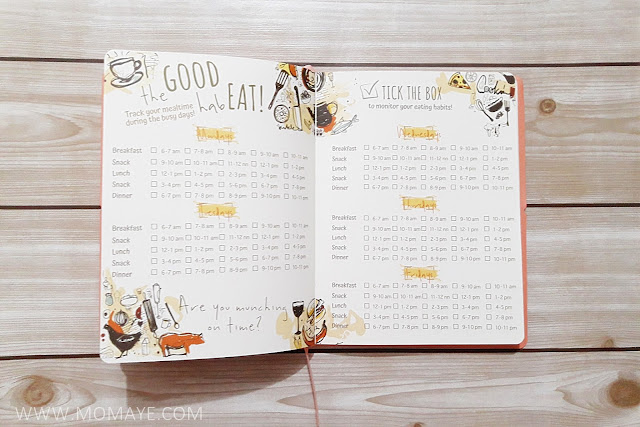 GOOD
the habEAT!
Track your mealtime
during the busy days!
Monday
Breakfast 6-7 am 7-8 am 8-9 am 9-10 am 10-11 am
Snack 9-10 am 10-11 am 11-12 nn 12-1 pm 1-2 pm
Lunch 12-1 pm 1-2 pm 2-3 pm 3-4 pm 4-5 pm
Snack 3-4 pm 4-5 pm 5-6 pm 6-7 pm
Dinner 6-7 pm 7-8 pm 8-9 pm 9-10 pm 10-11 pm
Tuesday
Breakfast 6-7 am 7-8 am 8-9 am 9-10 am 10-11 am
Snack 9-10 am 10-11 am 11-12 nn 12-1 pm 1-2 pm
Lunch 12-1 pm 1-2 pm 2-3 pm 3-4 pm 4-5 pm
Snack 3-4 pm 4-5 pm 5-6 pm 6-7 pm
Dinner 6-7 pm 7-8 pm 8-9 pm 9-10 pm 10-11 pm
Are you munching
on time?
TICK THE BOX
to monitor your eating habits!
Wednesday
Breakfast 6-7 am 7-8 am 8-9 am 9-10 am 10-11 am
Snack 9-10 am 10-11 am 11-12 nn 12-1 pm 1-2 pm
Lunch 12-1 pm 1-2 pm 2-3 pm 3-4 pm 4-5 pm
Snack 3-4 pm 4-5 pm 5-6 pm 6-7 pm
Dinner 6-7 pm 7-8 pm 8-9 pm 9-10 pm 10-11 pm
Thursday
Breakfast 6-7 am 7-8 am 8-9 am 9-10 am 10-11 am
Snack 9-10 am 10-11 am 11-12 nn 12-1 pm 1-2 pm
Lunch 12-1 pm 1-2 pm 2-3 pm 3-4 pm 4-5 pm
Snack 3-4 pm 4-5 pm 5-6 pm 6-7 pm
Dinner 6-7 pm 7-8 pm 8-9 pm 9-10 pm 10-11 pm
Friday
Breakfast 6-7 am 7-8 am 8-9 am 9-10 am 10-11 am
Snack 9-10 am 10-11 am 11-12 nn 12-1 pm 1-2 pm
Lunch 12-1 pm 1-2 pm 2-3 pm 3-4 pm 4-5 pm
Snack 3-4 pm 4-5 pm 5-6 pm 6-7 pm
Dinner 6-7 pm 7-8 pm 8-9 pm 9-10 pm 10-11 pm
WWW.MOMAYE.COM